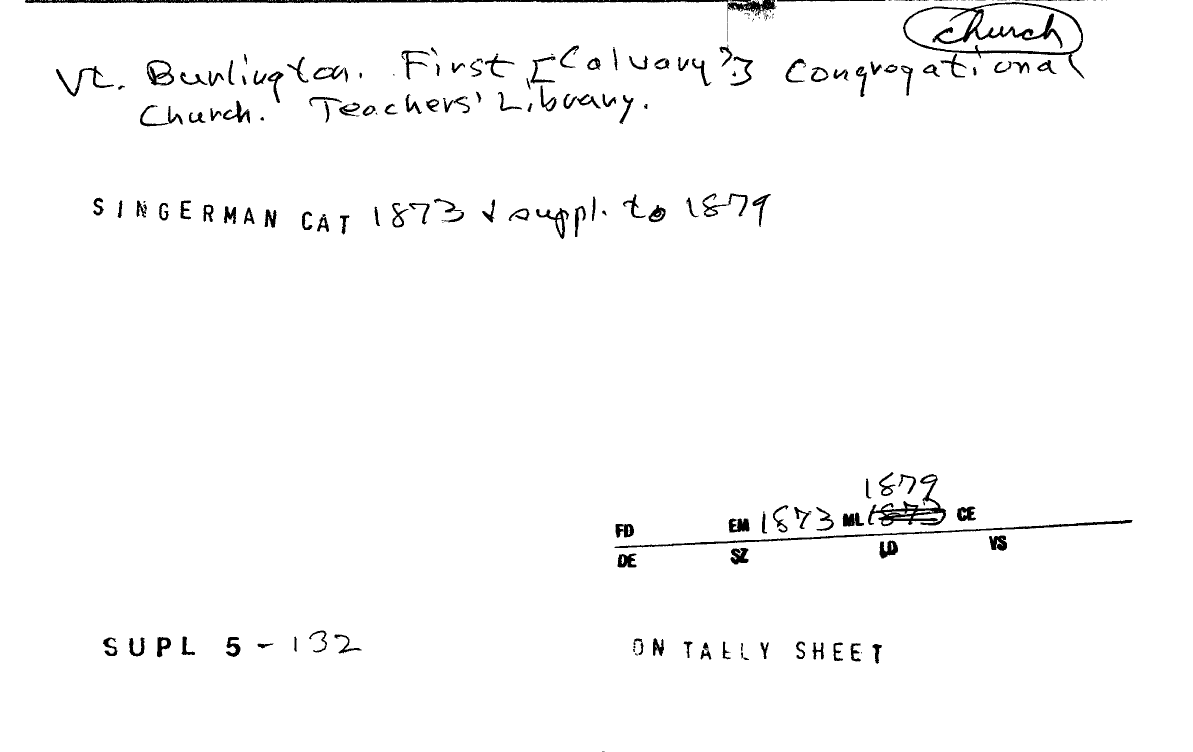 Church
Vt. Burlington. First [Calvary?] Congregational
Church. Teachers' Library.
SINGERMAN CAT 1873 & suppl. to 1879
1879
FD EM 1873 ML 1873 CE
DE SZ LD VS
SUPL 5 - 132 ON TALLY SHEET